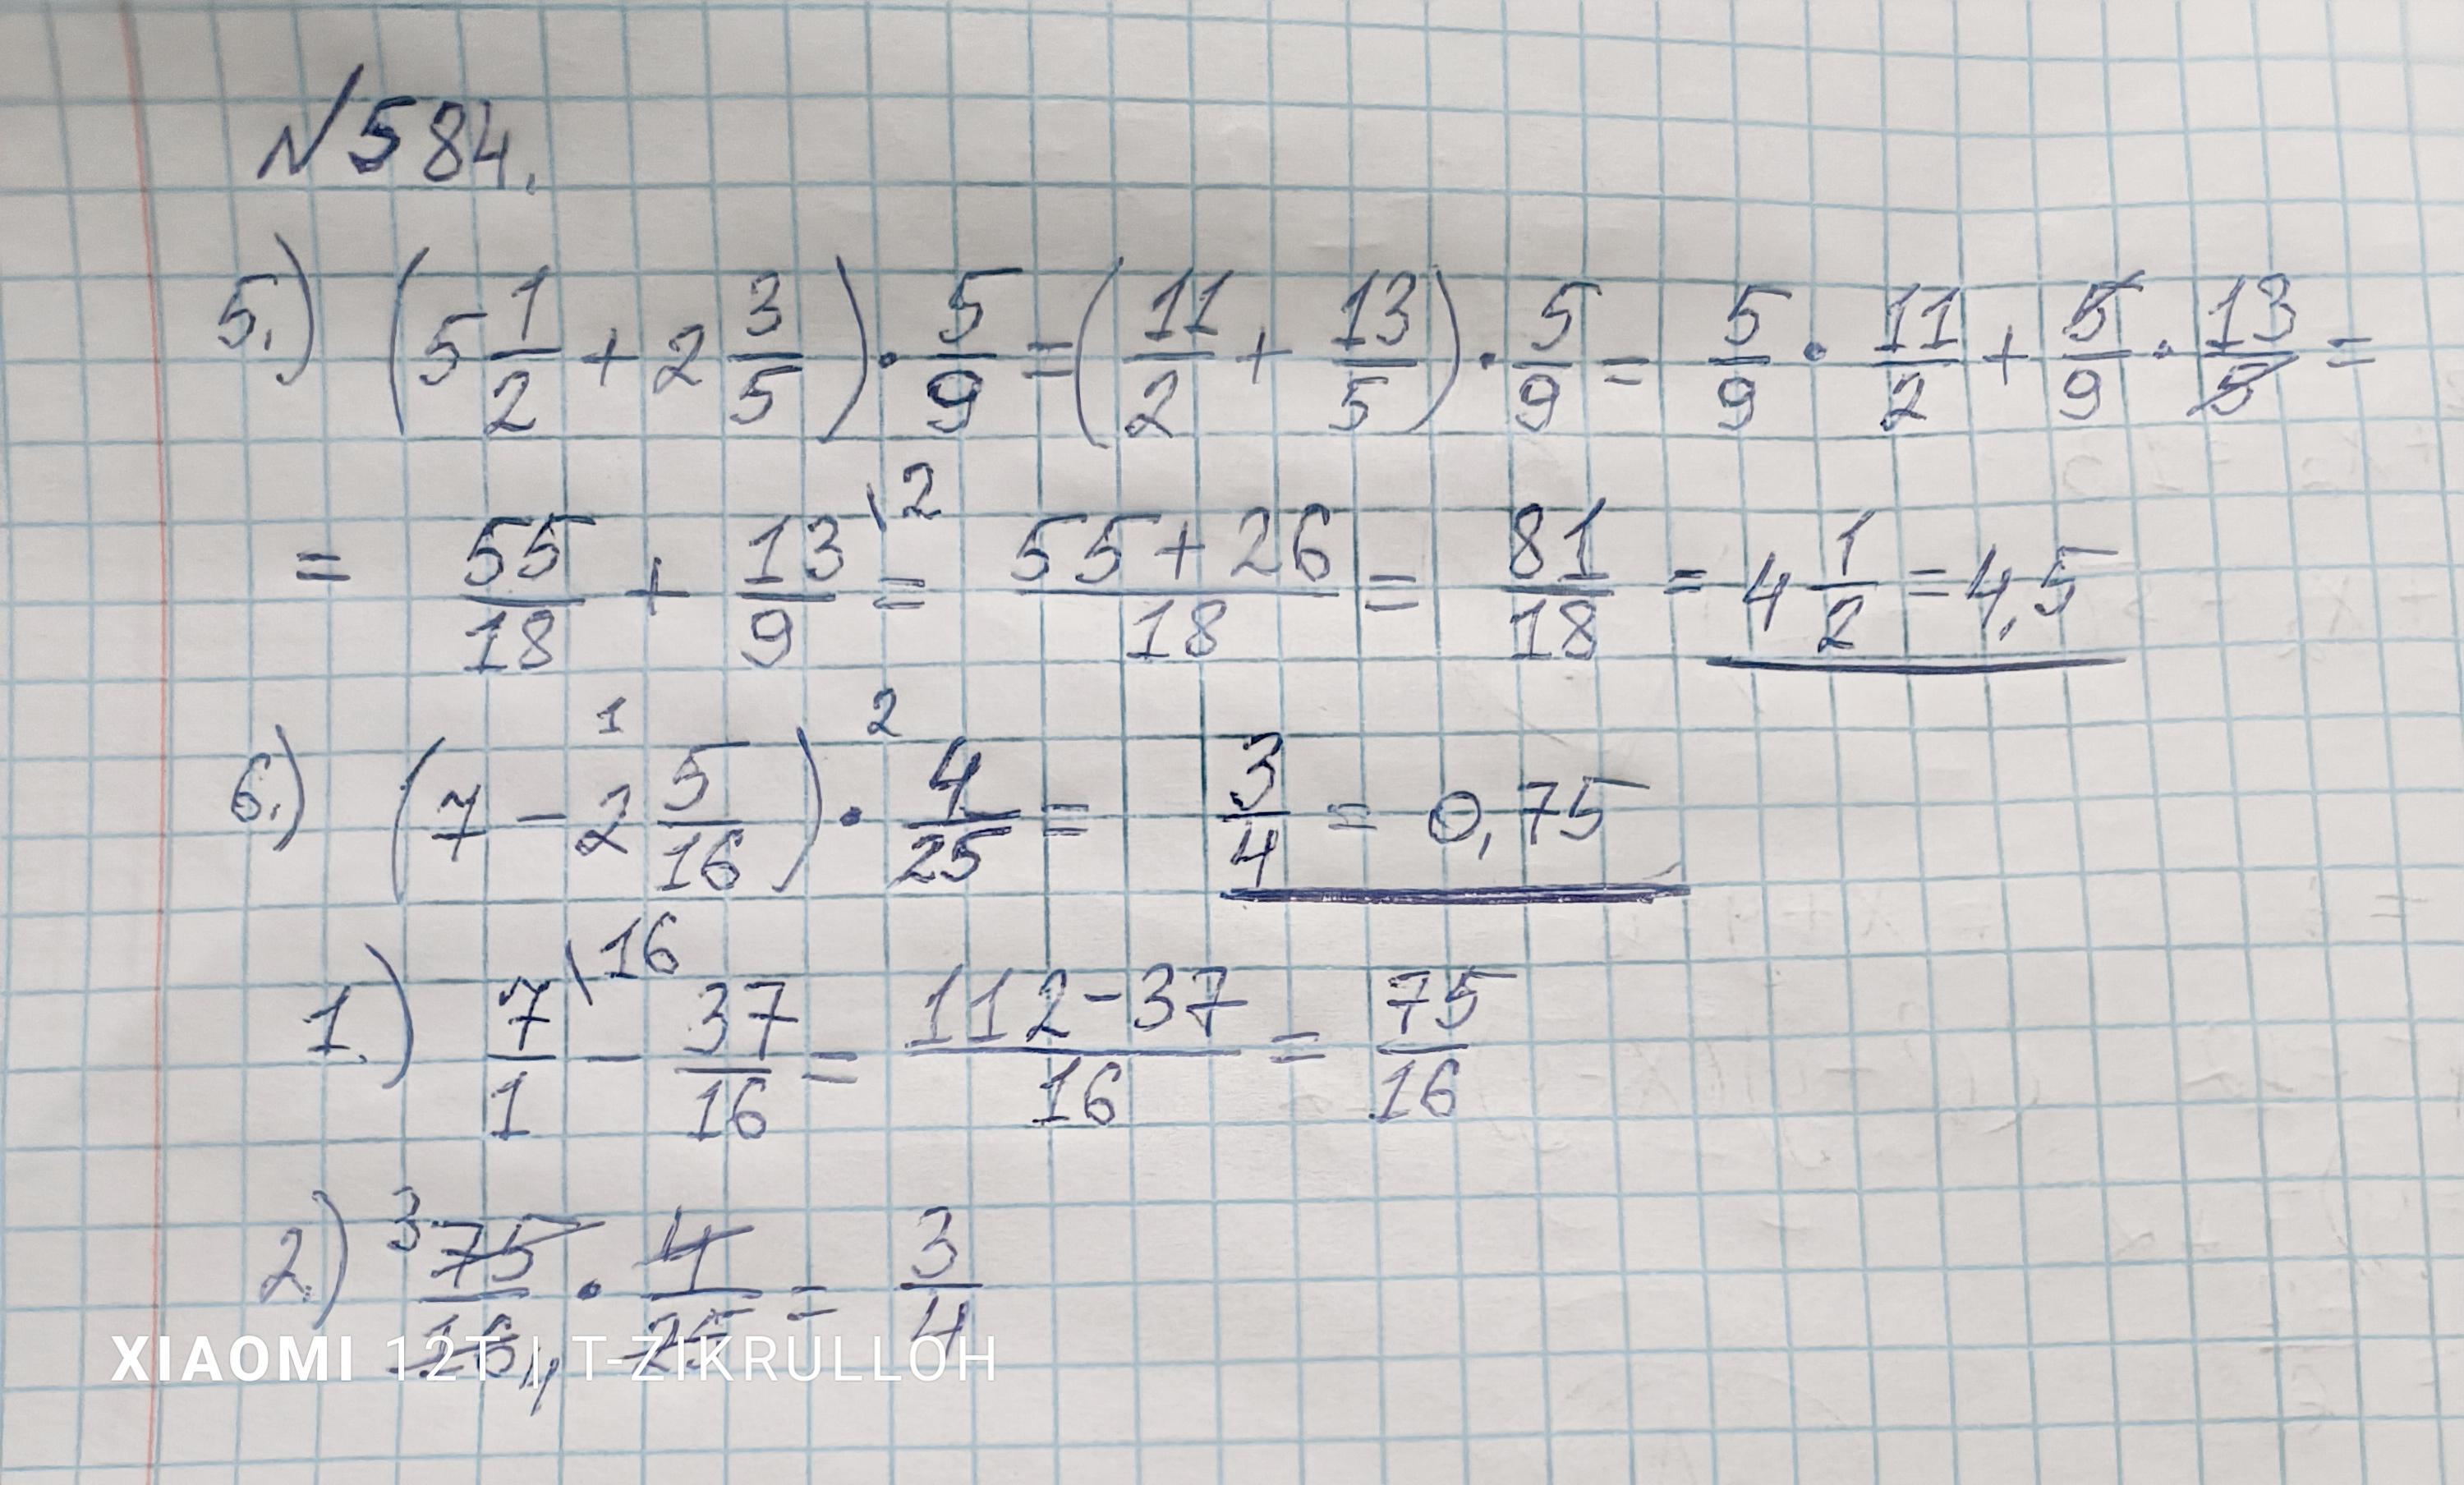 №584.
5.) (5 1/2 + 2 3/5) · 5/9 = (11/2 + 13/5) · 5/9 = 5/9 · 11/2 + 5/9 · 13/5 =
= 55/18 + 13/9 \2 = 55+26/18 = 81/18 = 4 1/2 = 4,5
1 2
6.) (7 - 2 5/16) · 4/25 = 3/4 = 0,75
1.) 7/1 \16 - 37/16 = 112-37/16 = 75/16
2.) 3 75/16 4 · 4/25 = 3/4
XIAOMI 12T | T-ZIKRULLOH